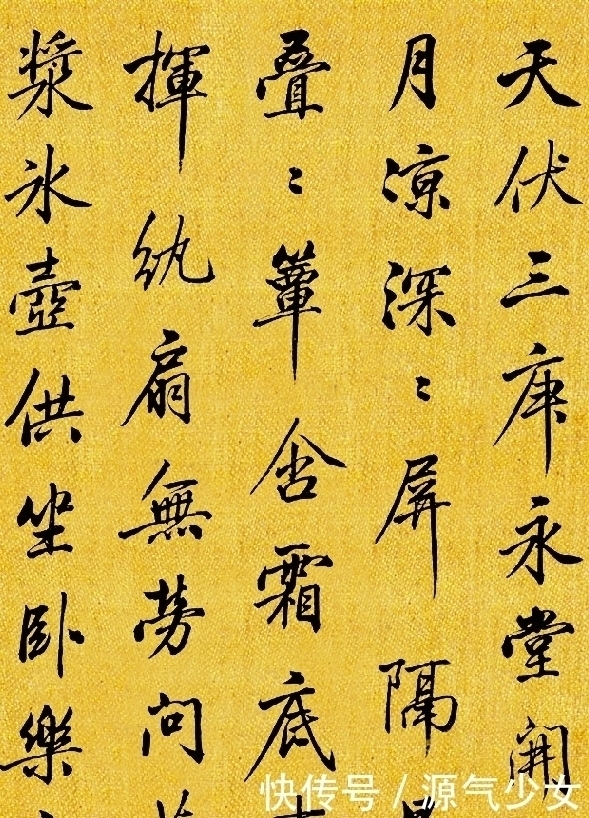 天伏三庚永堂開
月涼深〻屏隔
疊〻簟含霜底
揮紈扇無勞問
漿氷壺供坐卧樂
快传号 / 源气少女